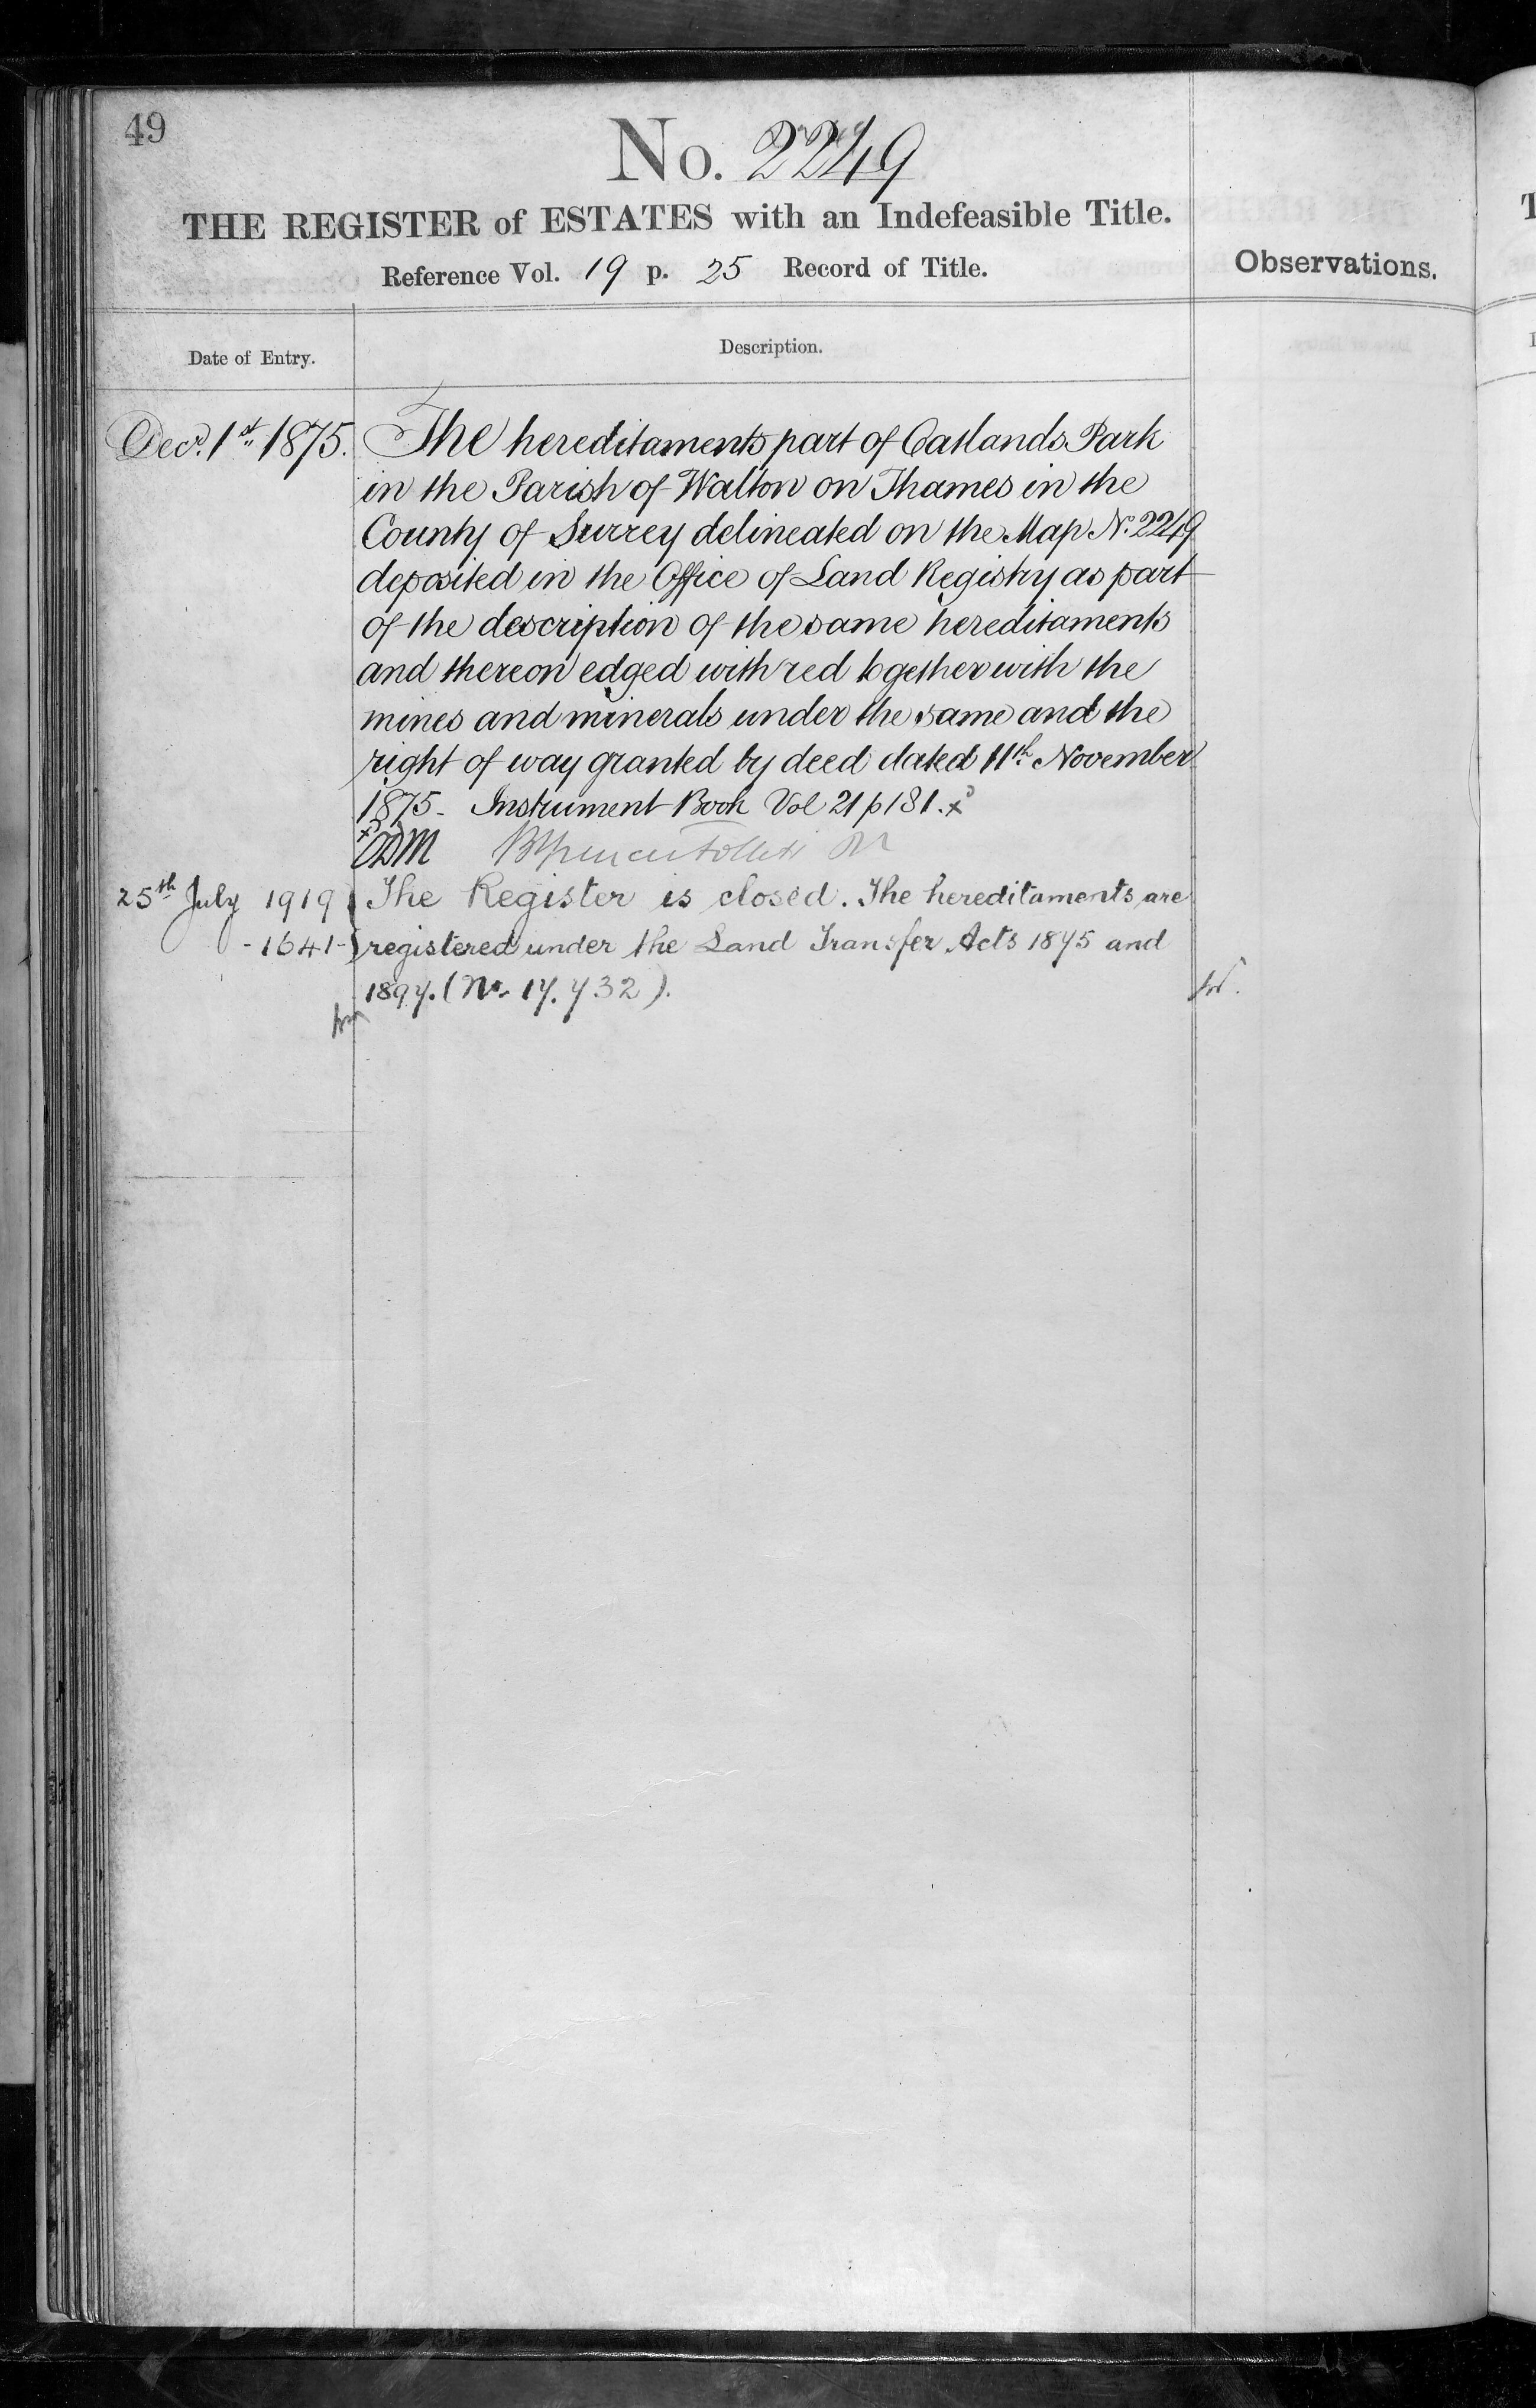 49
No. 2249
THE REGISTER of ESTATES with an Indefeasible Title.
Reference Vol. 19 p. 25 Record of Title.
Observations.
Date of Entry.
Description.
Decr. 1st 1875. The hereditaments part of Oatlands Park
in the Parish of Walton on Thames in the
County of Surrey delineated on the Map No. 2249
deposited in the Office of Land Registry as part
of the description of the same hereditaments
and thereon edged with red together with the
mines and minerals under the same and the
right of way granted by deed dated 11th November
1875 - Instrument Book Vol 21 p 181. x
x
25th July 1919 The Register is closed. The hereditaments are
- 1641 - registered under the Land Transfer Acts 1875 and
1897. (No. 17.732).